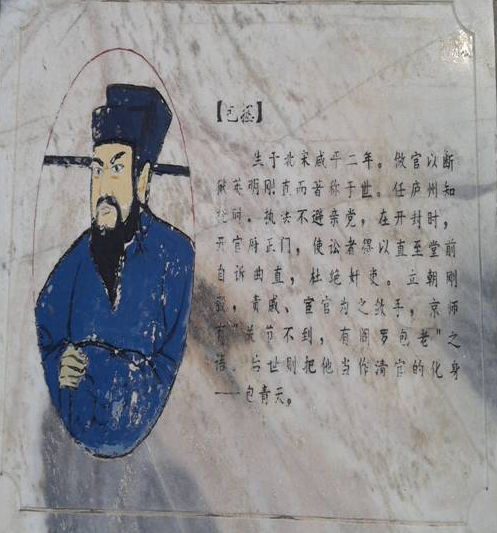 【包拯】
生于北宋咸平二年。做官以断
狱英明刚直而著称于世。任庐州知
府时。执法不避亲党，在开封时，
开官府正门，使讼者得以直至堂前
自诉曲直，杜绝奸吏。立朝刚
毅，贵戚、宦官为之敛手，京师
有“关节不到，有阎罗包老”之
语。后世则把他当作清官的化身
——包青天。